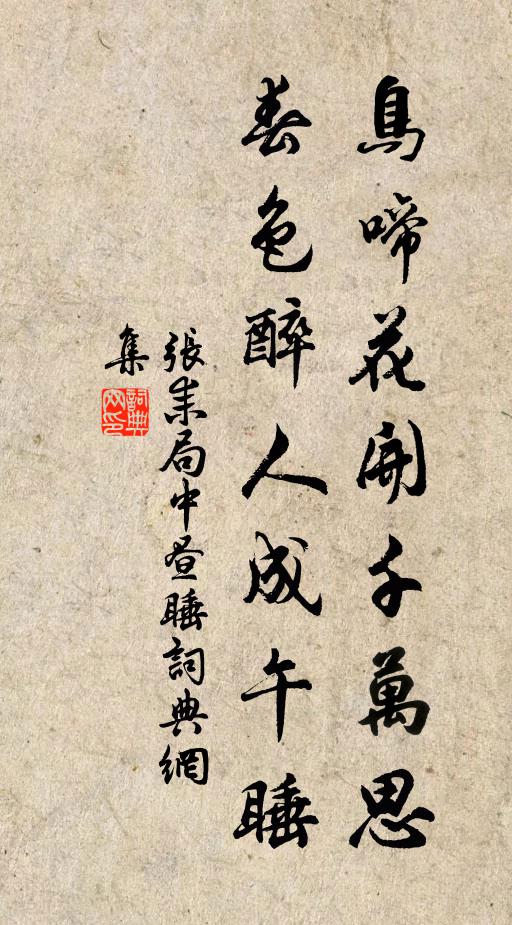 鳥啼花開千萬思
春色醉人成午睡
張耒局中昼睡詞典網
集
詞典
网印